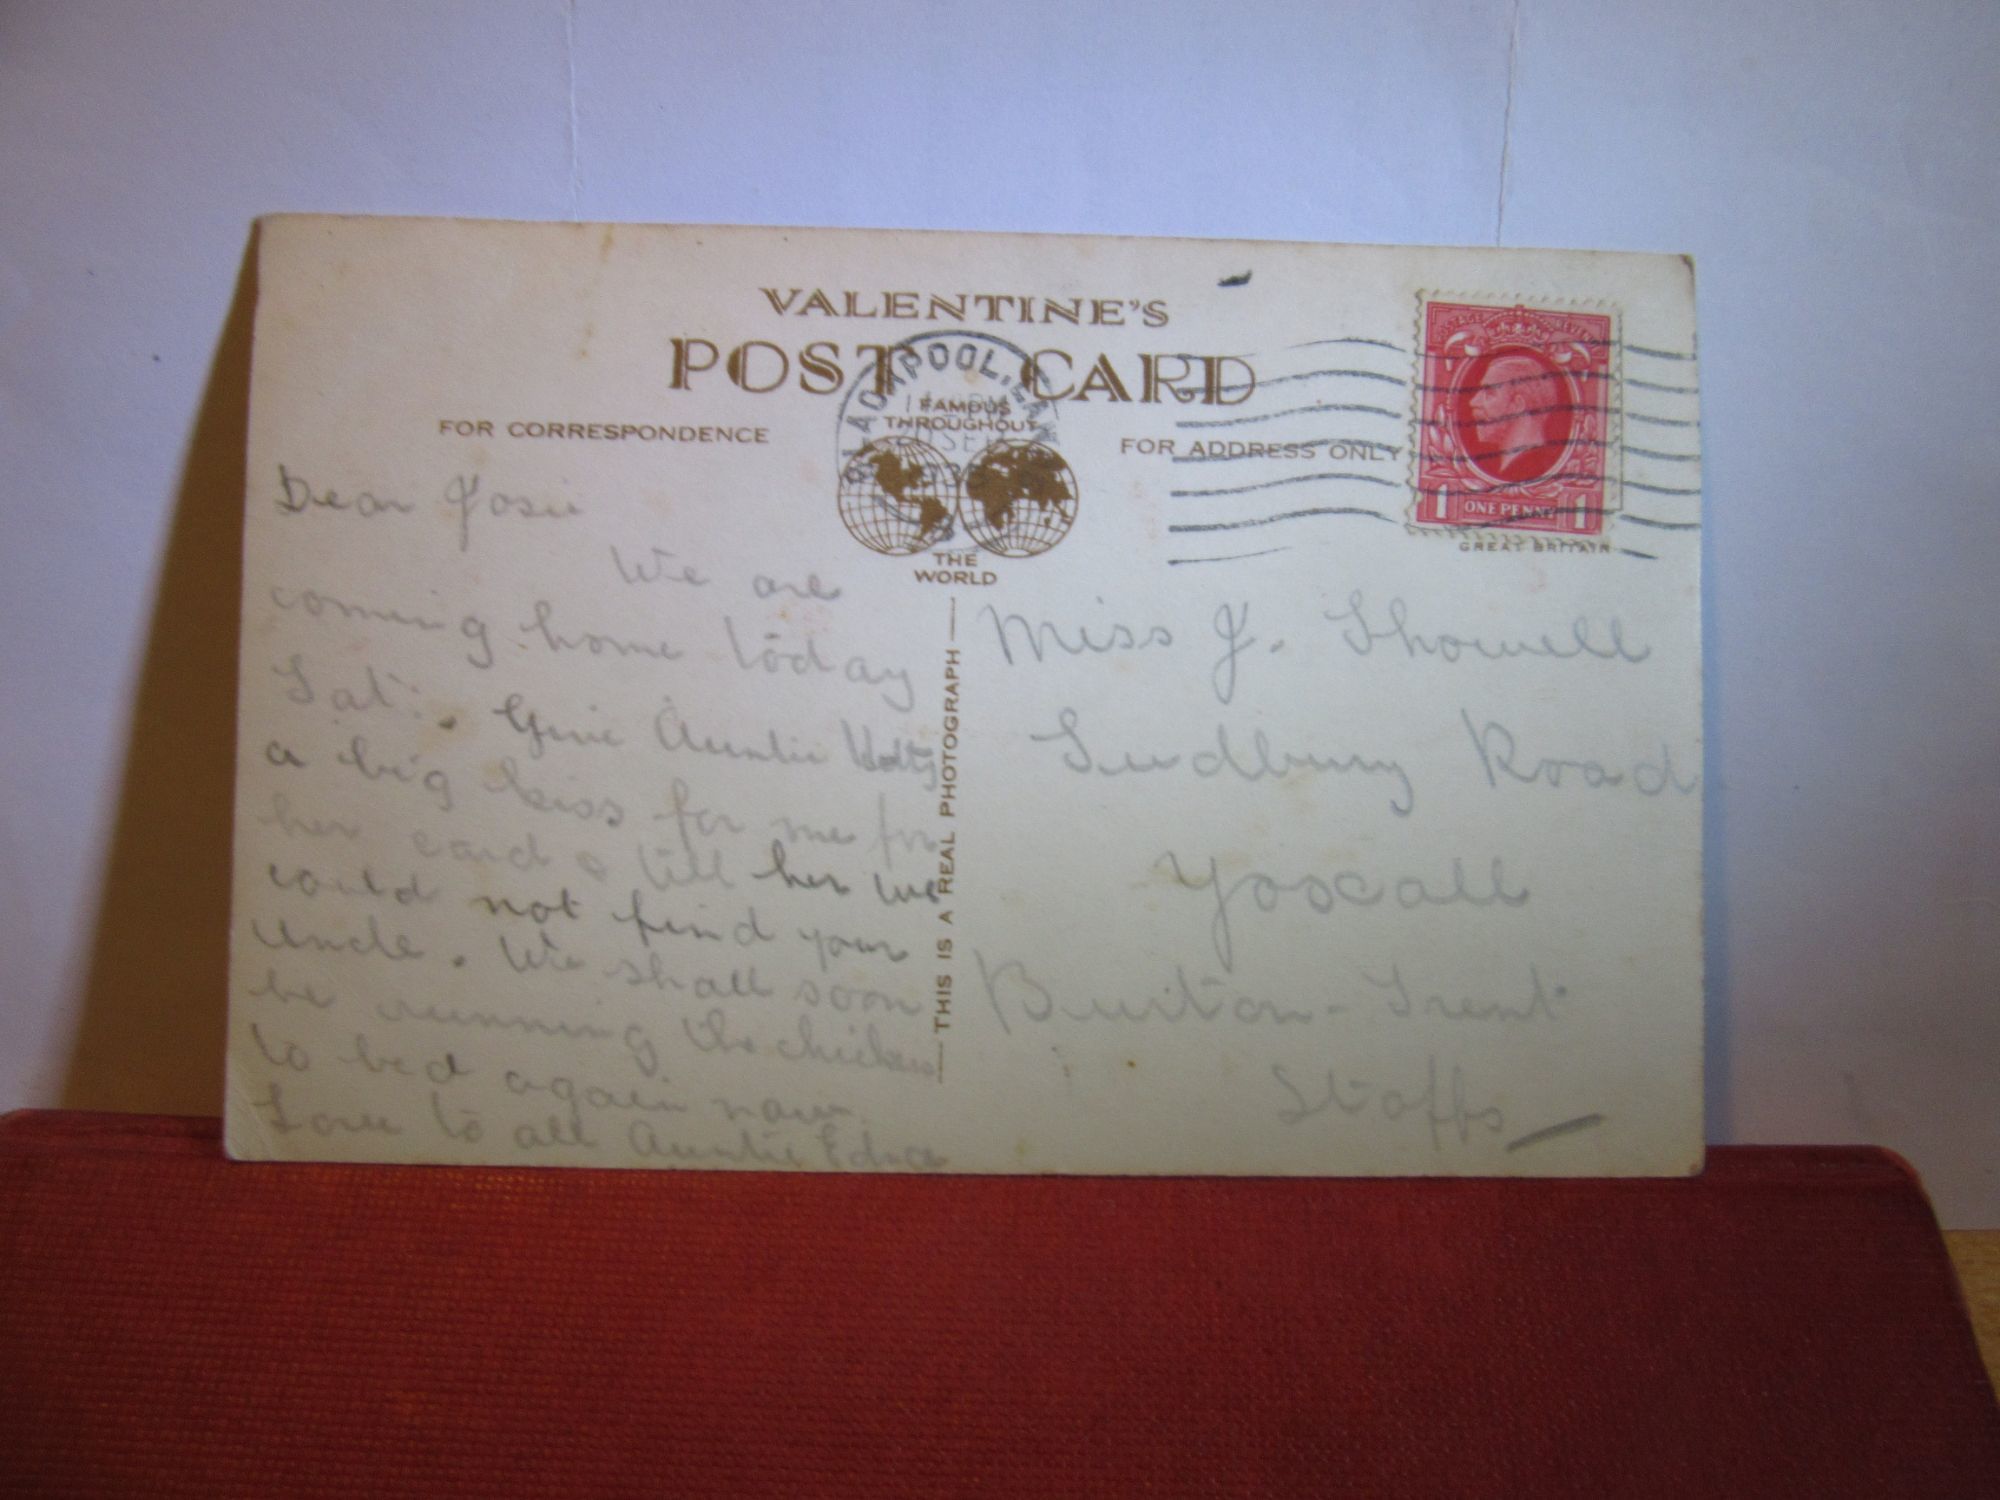 VALENTINE'S
POST CARD
BLACKPOOL, LANCS
SEP
FAMOUS
THROUGHOUT
THE
WORLD
FOR CORRESPONDENCE
FOR ADDRESS ONLY
1 ONE PENNY 1
GREAT BRITAIN
THIS IS A REAL PHOTOGRAPH
Dear Josie
We are
coming home today
Sat: . Give Auntie
a big kiss for me for
her card & tell her we
could not find your
uncle. We shall soon
be running the chicken
to bed again now.
Love to all Auntie Edna
Miss J. Showell
Sudbury Road
Yoxall
Burton-Trent
Staffs